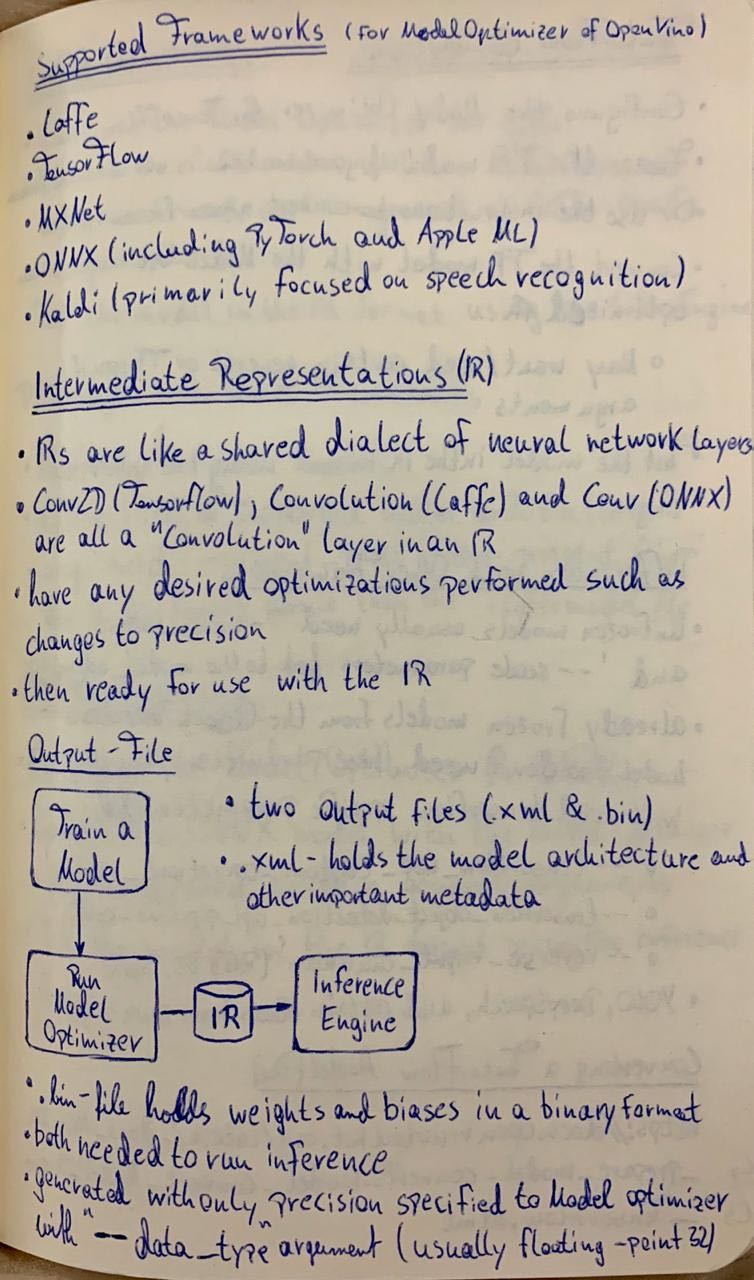 Supported Frameworks (for Model Optimizer of OpenVino)
• Caffe
• TensorFlow
• MXNet
• ONNX (including PyTorch and Apple ML)
• Kaldi (primarily focused on speech recognition)
Intermediate Representations (IR)
• IRs are like a shared dialect of neural network layers
• Conv2D (Tensorflow), Convolution (Caffe) and Conv (ONNX)
are all a "Convolution" layer in an IR
• have any desired optimizations performed such as
changes to precision
• then ready for use with the IR
Output-File
Train a
Model
• two output files (.xml & .bin)
• .xml - holds the model architecture and
other important metadata
Run
Model
Optimizer
IR
Inference
Engine
• .bin-file holds weights and biases in a binary format
• both needed to run inference
• generated with only precision specified to Model optimizer
with "--data_type" argument (usually floating-point 32)